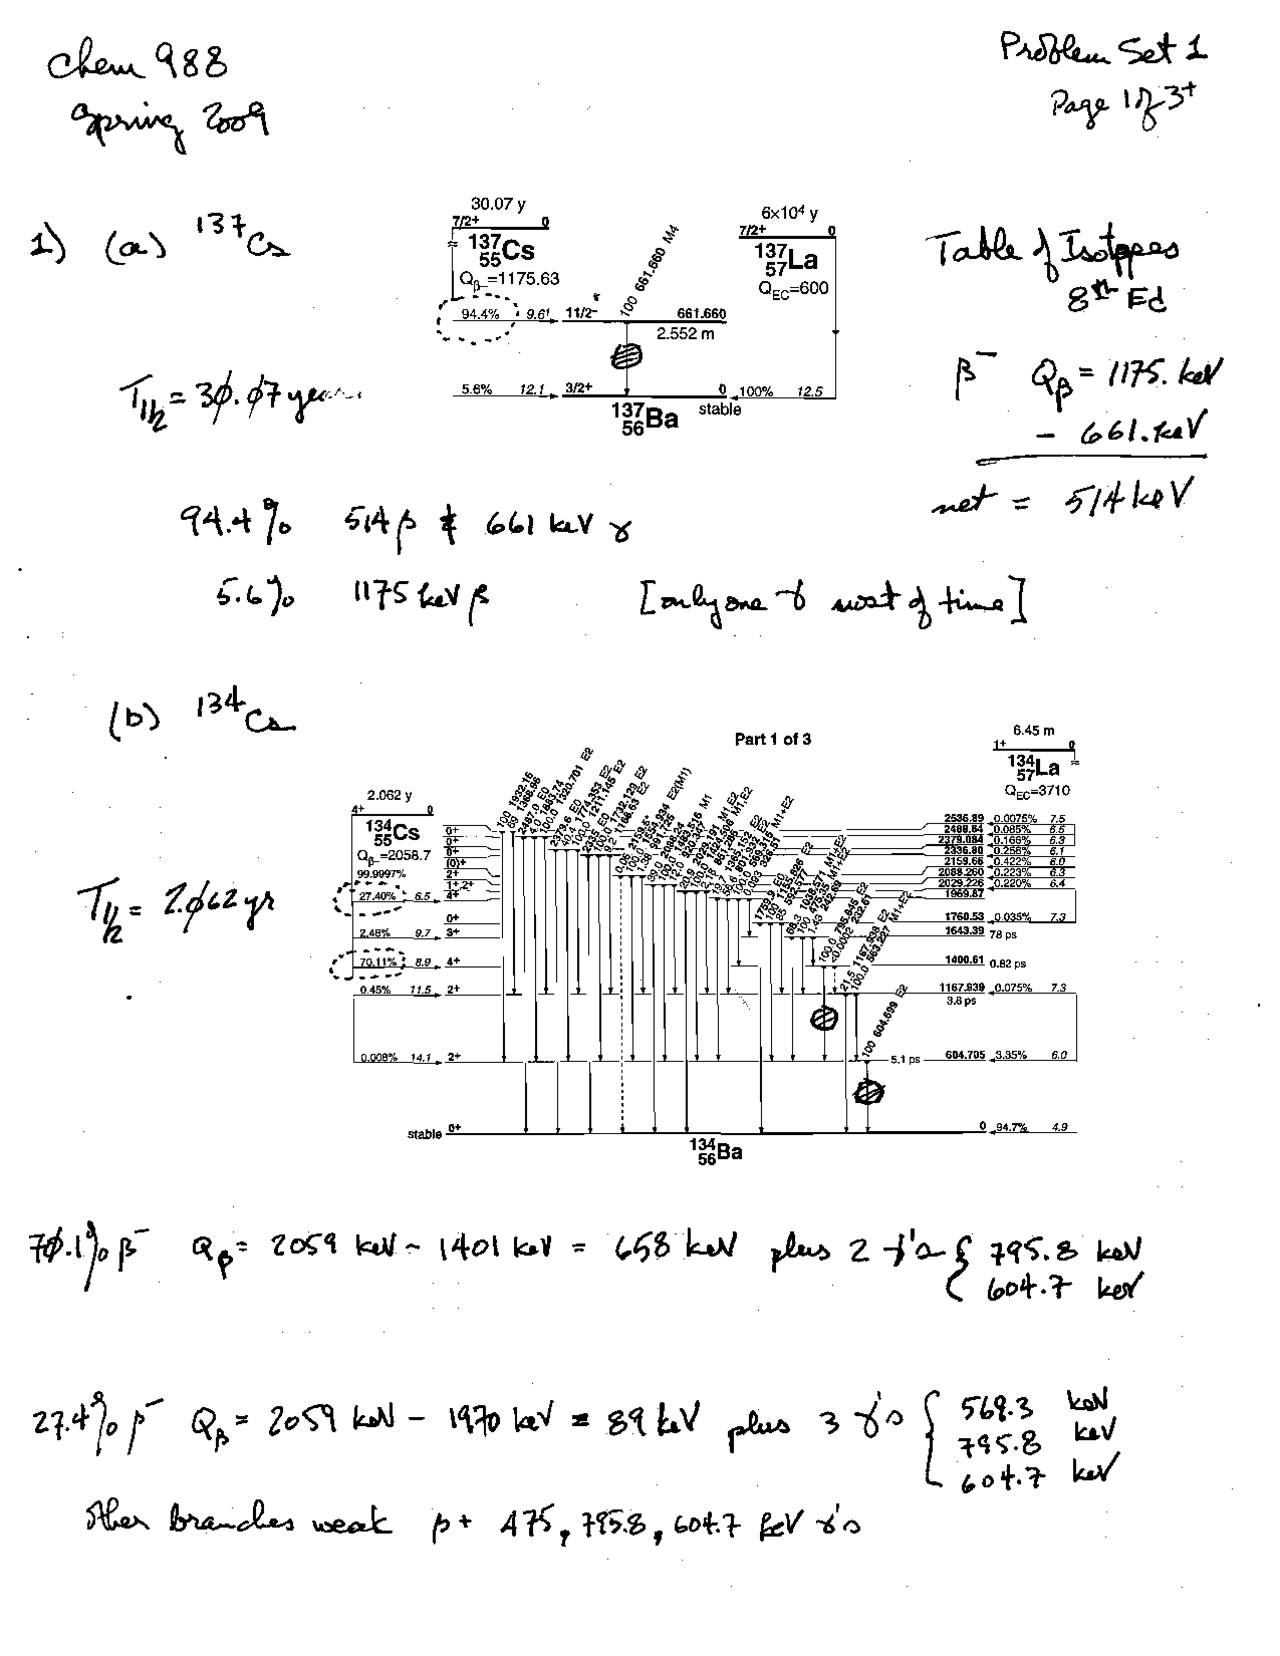 Chem 988
Spring 2009
Problem Set 1
Page 1 of 3+
1) (a) 137Cs
30.07 y
7/2+ 0
137 55 Cs
Qβ-=1175.63
94.4% 9.61 11/2- 661.660
2.552 m
100 661.660 M4
5.6% 12.1 3/2+ 0 stable
137 56 Ba
6×10⁴ y
7/2+ 0
137 57 La
QEC=600
100% 12.5
Table of Isotopes
8th Ed
T1/2 = 3Ø.Ø7 years
β- Qβ = 1175. keV
- 661. keV
net = 514 keV
94.4% 514 β & 661 keV γ
5.6% 1175 keV β [only one γ most of time]
(b) 134Cs
Part 1 of 3
6.45 m
1+ 0
134 57 La
QEC=3710
2.062 y
4+ 0
134 55 Cs
Qβ-=2058.7
99.9997%
T1/2 = 2.Ø62 yr
0+ 2536.89 0.0075% 7.5
0+ 2488.64 0.085% 6.5
0+ 2379.084 0.166% 6.3
0+ 2336.80 0.256% 6.1
(0)+ 2159.66 0.422% 6.0
2+ 2088.260 0.223% 6.3
1+,2+ 2029.226 0.220% 6.4
27.40% 6.5 4+ 1969.87
0+ 1760.53 0.035% 7.3
2.48% 9.7 3+ 1643.39 78 ps
70.11% 8.9 4+ 1400.61 0.82 ps
0.45% 11.5 2+ 1167.939 0.075% 7.3
3.8 ps
100 604.699 E2
0.008% 14.1 2+ 5.1 ps 604.705 3.35% 6.0
stable 0+ 0 94.7% 4.9
134 56 Ba
7Ø.1% β- Qβ = 2059 keV - 1401 keV = 658 keV plus 2 γ's { 795.8 keV
604.7 keV
27.4% β- Qβ = 2059 keV - 1970 keV = 89 keV plus 3 γ's { 569.3 keV
795.8 keV
604.7 keV
Other branches weak β + 475, 795.8, 604.7 keV γ's